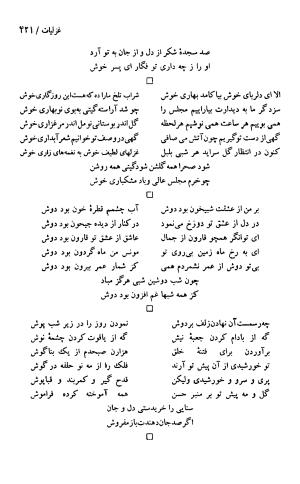 غزلیات / ۴۲۱
صد سجدهٔ شکر از دل و از جان به تو آرد
او را ز چه داری تو فگار ای پسر خوش
الا ای دلربای خوش بیا کامد بهاری خوش
شراب تلخ ما را ده که هست این روزگاری خوش
سزد گر ما به دیدارت بیاراییم مجلس را
چو شد آراسته گیتی به بوی نوبهاری خوش
همی بوییم هر ساعت همی نوشیم هر لحظه
گل اندر بوستانی نو مل اندر مرغزاری خوش
گهی از دست تو گیریم چون آتش می صافی
گهی در وصف تو خوانیم شعر آبداری خوش
کنون در انتظار گل سراید هر شبی بلبل
غزلهای لطیف خوش به نغمه‌های زاری خوش
شود صحرا همه گلشن شود گیتی همه روشن
چو خرم مجلس عالی و باد مشکباری خوش
بر من از عشقت شبیخون بود دوش
آب چشمم قطرهٔ خون بود دوش
در دل از عشق تو دوزخ می‌نمود
در کنار از دیده جیحون بود دوش
ای توانگر همچو قارون از جمال
عاشق از عشق تو قارون بود دوش
ای به رخ ماه زمین بی روی تو
مونس من ماه گردون بود دوش
بی‌تو دوش از عمر نشمردم همی
کز شمار عمر بیرون بود دوش
چون شب دوشین شبی هرگز مباد
کز همه شبها غم افزون بود دوش
چه رسمست آن نهادن زلف بر دوش
نمودن روز را در زیر شب پوش
گه از بادام کردن جعبهٔ نیش
گه از یاقوت کردن چشمهٔ نوش
برآوردن برای فتنهٔ خلق
هزاران صبحدم از یک بناگوش
تو خورشیدی از آن پیش تو آرند
فلک را از مه نو حلقه در گوش
پری و سرو و خورشیدی ولیکن
قدح گیر و کمربند و قباپوش
گل و مه پیش تو بر منبر حسن
همه آموخته کرده فراموش
سنایی را خریدستی دل و جان
اگر صد جان دهندت باز مفروش